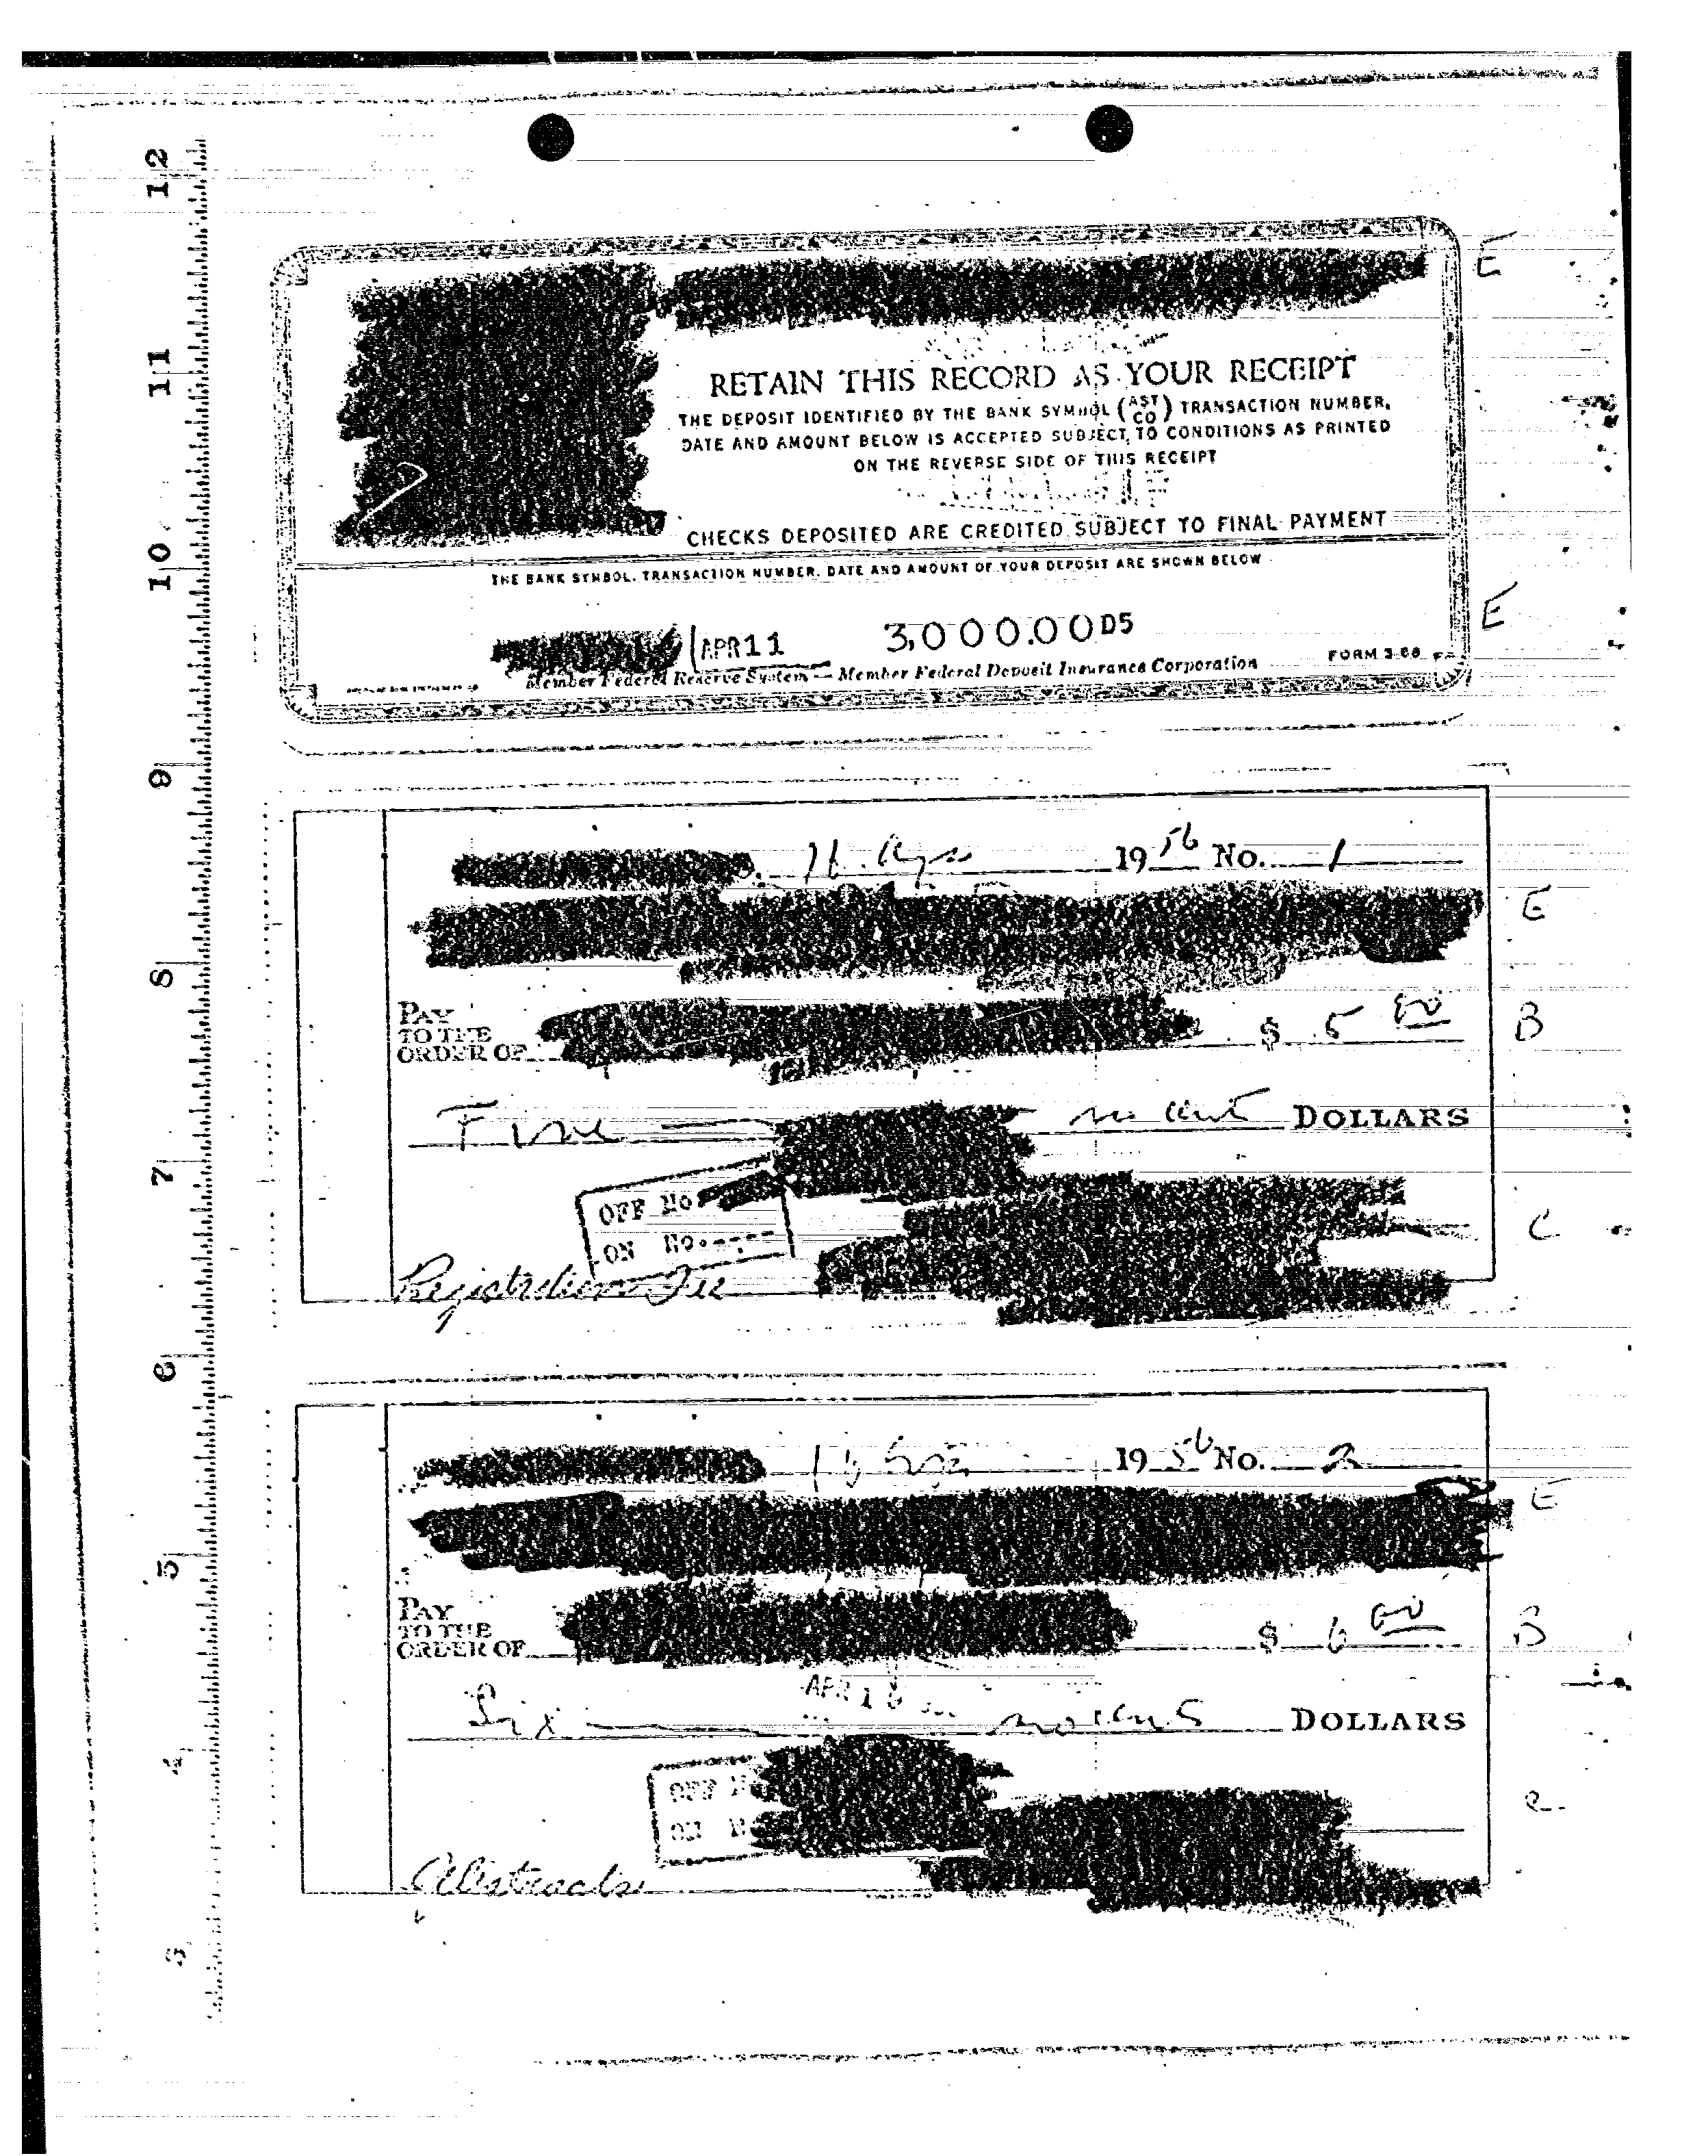 E
RETAIN THIS RECORD AS YOUR RECEIPT
THE DEPOSIT IDENTIFIED BY THE BANK SYMBOL (AST CO) TRANSACTION NUMBER,
DATE AND AMOUNT BELOW IS ACCEPTED SUBJECT TO CONDITIONS AS PRINTED
ON THE REVERSE SIDE OF THIS RECEIPT
CHECKS DEPOSITED ARE CREDITED SUBJECT TO FINAL PAYMENT
THE BANK SYMBOL, TRANSACTION NUMBER, DATE AND AMOUNT OF YOUR DEPOSIT ARE SHOWN BELOW
E
APR 11 3,000.00 D5
Member Federal Reserve System — Member Federal Deposit Insurance Corporation FORM 3-66
19 56 No. 1
E
PAY
TO THE
ORDER OF $ 5 00 B
Five no cents DOLLARS
OFF No
ON No.
C
Registration Fee
16 19 56 No. 2
E
PAY
TO THE
ORDER OF $ 6 00 B
APR 16
Six no cents DOLLARS
OFF N
ON N
C
Abstracts
12
11
10
9
8
7
6
5
4
3